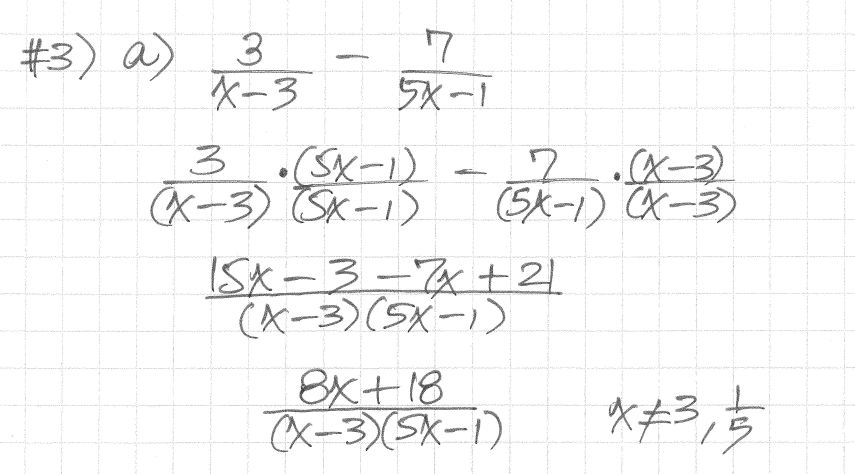 #3) a) 3/(x-3) - 7/(5x-1)
3/(x-3) · (5x-1)/(5x-1) - 7/(5x-1) · (x-3)/(x-3)
(15x - 3 - 7x + 21)/((x-3)(5x-1))
(8x+18)/((x-3)(5x-1)) x≠3, 1/5